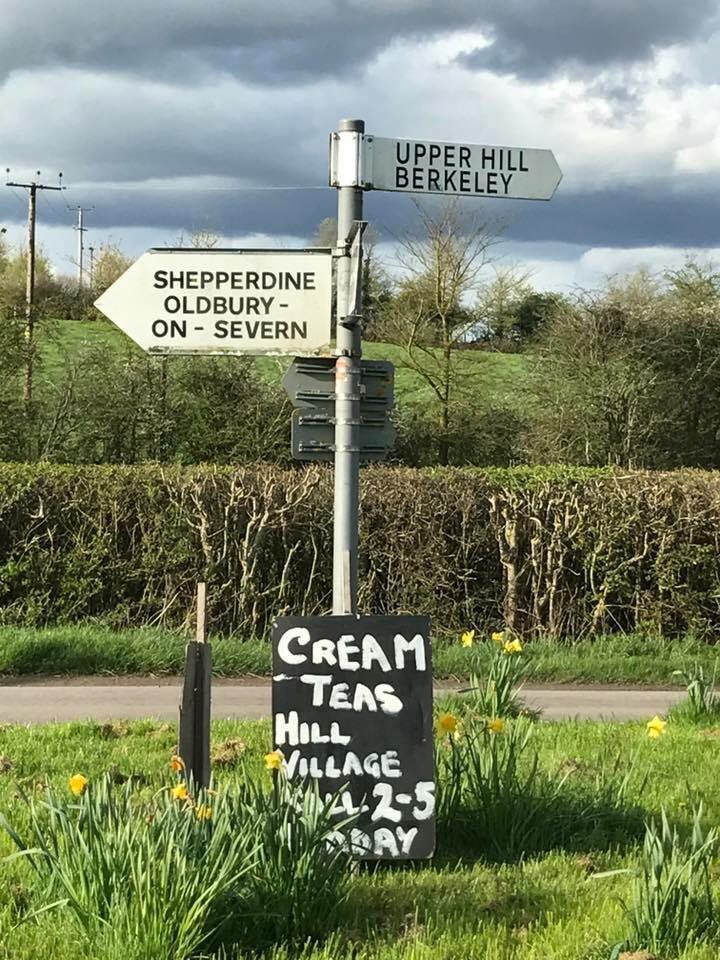 UPPER HILL
BERKELEY
SHEPPERDINE
OLDBURY-
ON - SEVERN
CREAM
TEAS
HILL
VILLAGE
2-5